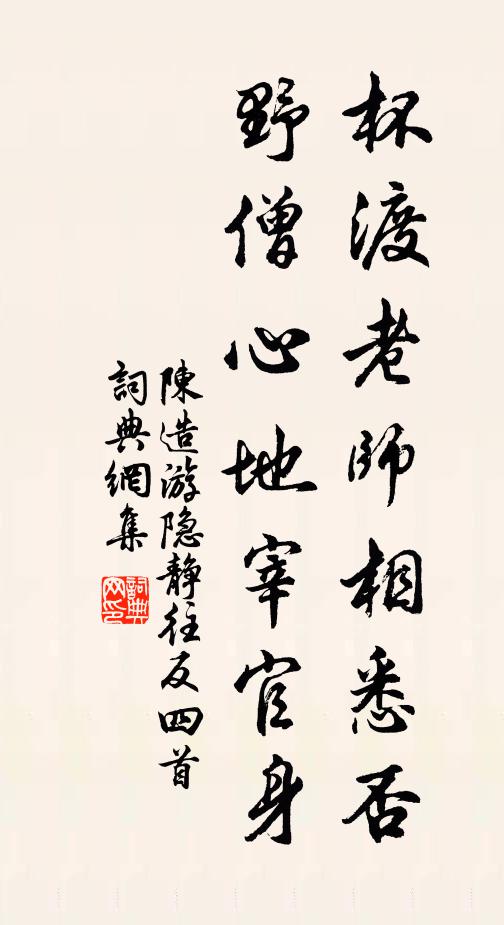 杯渡老师相悉否
野僧心地宰官身
陳造游隐静往反四首
詞典網集
詞典網印